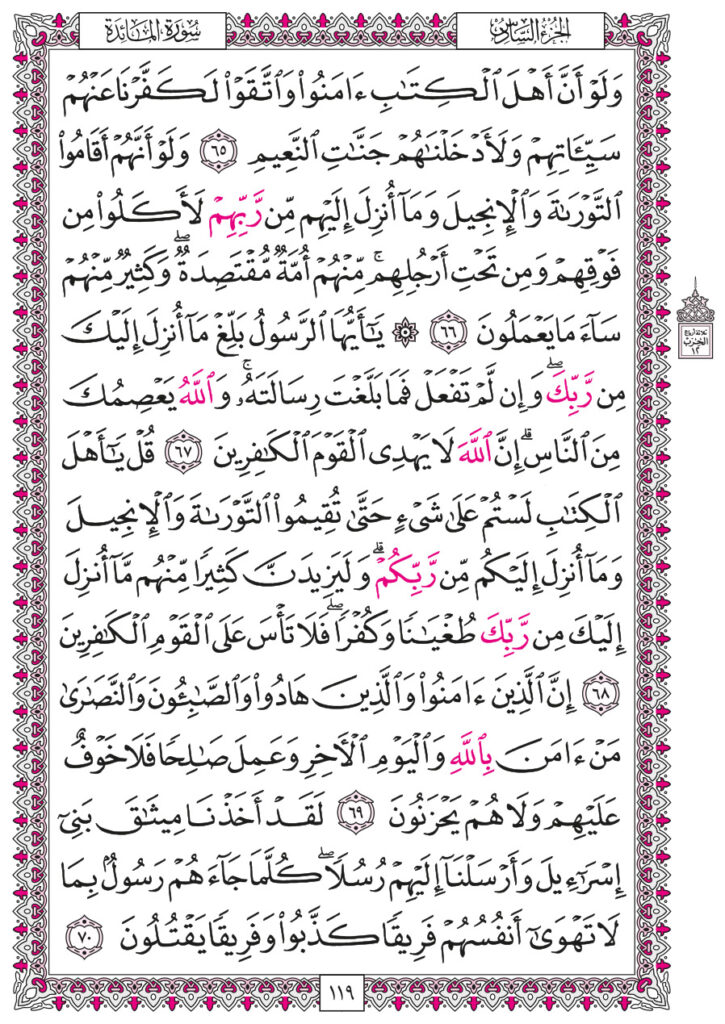 الجزء السادس
سورة المائدة
وَلَوۡ أَنَّ أَهۡلَ ٱلۡكِتَٰبِ ءَامَنُواْ وَٱتَّقَوۡاْ لَكَفَّرۡنَا عَنۡهُمۡ
سَيِّـَٔاتِهِمۡ وَلَأَدۡخَلۡنَٰهُمۡ جَنَّٰتِ ٱلنَّعِيمِ ٦٥ وَلَوۡ أَنَّهُمۡ أَقَامُواْ
ٱلتَّوۡرَىٰةَ وَٱلۡإِنجِيلَ وَمَآ أُنزِلَ إِلَيۡهِم مِّن رَّبِّهِمۡ لَأَكَلُواْ مِن
فَوۡقِهِمۡ وَمِن تَحۡتِ أَرۡجُلِهِمۚ مِّنۡهُمۡ أُمَّةٞ مُّقۡتَصِدَةٞۖ وَكَثِيرٞ مِّنۡهُمۡ
سَآءَ مَا يَعۡمَلُونَ ٦٦ ۞ يَٰٓأَيُّهَا ٱلرَّسُولُ بَلِّغۡ مَآ أُنزِلَ إِلَيۡكَ
مِن رَّبِّكَۖ وَإِن لَّمۡ تَفۡعَلۡ فَمَا بَلَّغۡتَ رِسَالَتَهُۥۚ وَٱللَّهُ يَعۡصِمُكَ
مِنَ ٱلنَّاسِۗ إِنَّ ٱللَّهَ لَا يَهۡدِي ٱلۡقَوۡمَ ٱلۡكَٰفِرِينَ ٦٧ قُلۡ يَٰٓأَهۡلَ
ٱلۡكِتَٰبِ لَسۡتُمۡ عَلَىٰ شَيۡءٍ حَتَّىٰ تُقِيمُواْ ٱلتَّوۡرَىٰةَ وَٱلۡإِنجِيلَ
وَمَآ أُنزِلَ إِلَيۡكُم مِّن رَّبِّكُمۡۗ وَلَيَزِيدَنَّ كَثِيرٗا مِّنۡهُم مَّآ أُنزِلَ
إِلَيۡكَ مِن رَّبِّكَ طُغۡيَٰنٗا وَكُفۡرٗاۖ فَلَا تَأۡسَ عَلَى ٱلۡقَوۡمِ ٱلۡكَٰفِرِينَ
٦٨ إِنَّ ٱلَّذِينَ ءَامَنُواْ وَٱلَّذِينَ هَادُواْ وَٱلصَّٰبِـُٔونَ وَٱلنَّصَٰرَىٰ
مَنۡ ءَامَنَ بِٱللَّهِ وَٱلۡيَوۡمِ ٱلۡأٓخِرِ وَعَمِلَ صَٰلِحٗا فَلَا خَوۡفٌ
عَلَيۡهِمۡ وَلَا هُمۡ يَحۡزَنُونَ ٦٩ لَقَدۡ أَخَذۡنَا مِيثَٰقَ بَنِيٓ
إِسۡرَٰٓءِيلَ وَأَرۡسَلۡنَآ إِلَيۡهِمۡ رُسُلٗاۖ كُلَّمَا جَآءَهُمۡ رَسُولُۢ بِمَا
لَا تَهۡوَىٰٓ أَنفُسُهُمۡ فَرِيقٗا كَذَّبُواْ وَفَرِيقٗا يَقۡتُلُونَ ٧٠
ثلاثة أرباع
الحزب
١٢
١١٩